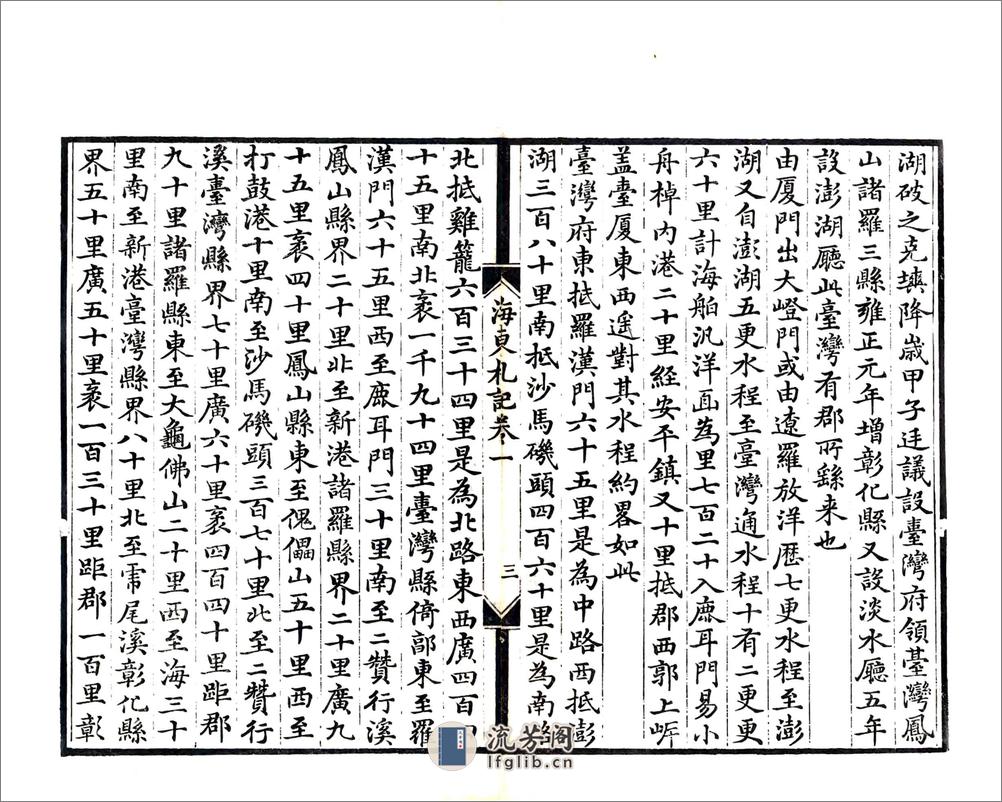 湖破之克塽降歲甲子廷議設臺灣府領臺灣鳳
山諸羅三縣雍正元年增彰化縣又設淡水廳五年
設澎湖廳此臺灣有郡所繇来也
由厦門出大嶝門或由遼羅放洋歷七更水程至澎
湖又自澎湖五更水程至臺灣通水程十有二更更
六十里計海舶汎洋直為里七百二十入鹿耳門易小
舟棹内港二十里經安平鎮又十里抵郡西郭上岸
盖臺厦東西遥對其水程約畧如此
臺灣府東抵羅漢門六十五里是為中路西抵澎
湖三百八十里南抵沙馬磯頭四百六十里是為南路
海東札記卷一
三
北抵雞籠六百三十四里是為北路東西廣四百四
十五里南北袤一千九十四里臺灣縣倚郭東至羅
漢門六十五里西至鹿耳門三十里南至二贊行溪
鳳山縣界二十里北至新港諸羅縣界二十里廣九
十五里袤四十里鳳山縣東至傀儡山五十里西至
打鼓港十里南至沙馬磯頭三百七十里北至二贊行
溪臺灣縣界七十里廣六十里袤四百四十里距郡
九十里諸羅縣東至大龜佛山二十里西至海三十
里南至新港臺灣縣界八十里北至虎尾溪彰化縣
界五十里廣五十里袤一百三十里距郡一百里彰
流芳阁
lfglib.cn